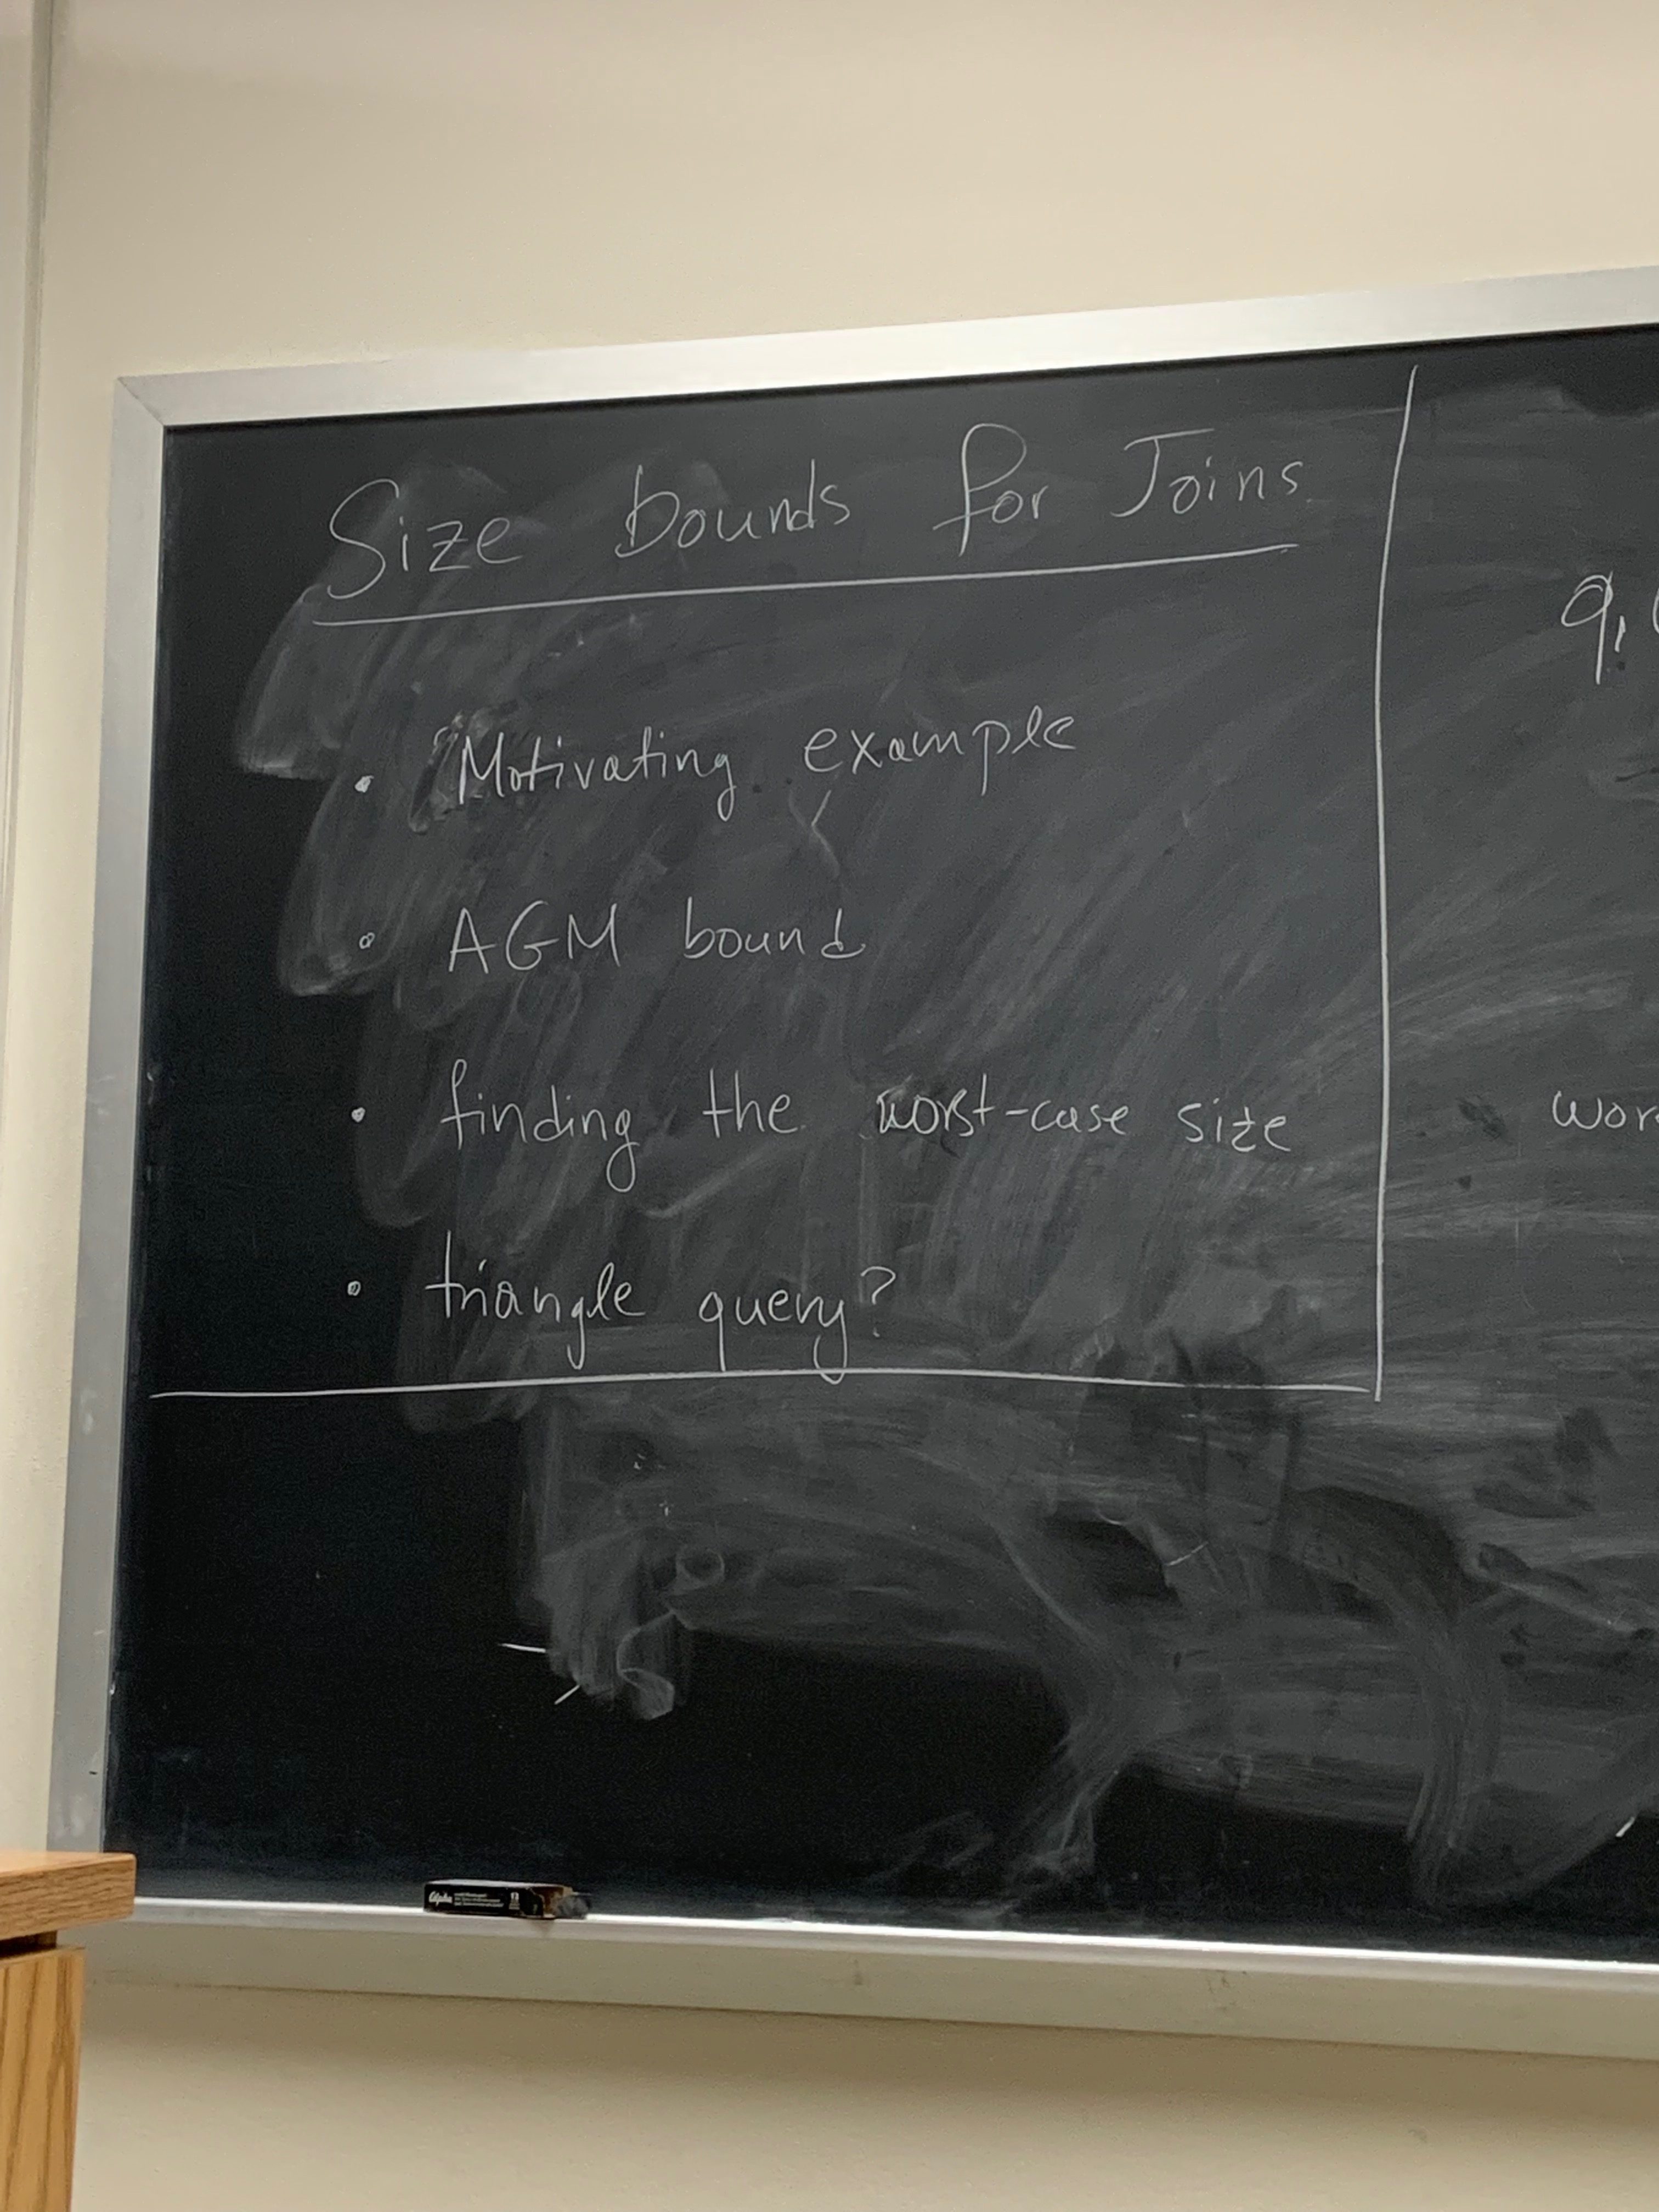 Size bounds for Joins
• Motivating example
• AGM bound
• finding the worst-case size
• triangle query?
q₁(
wor
Alpha